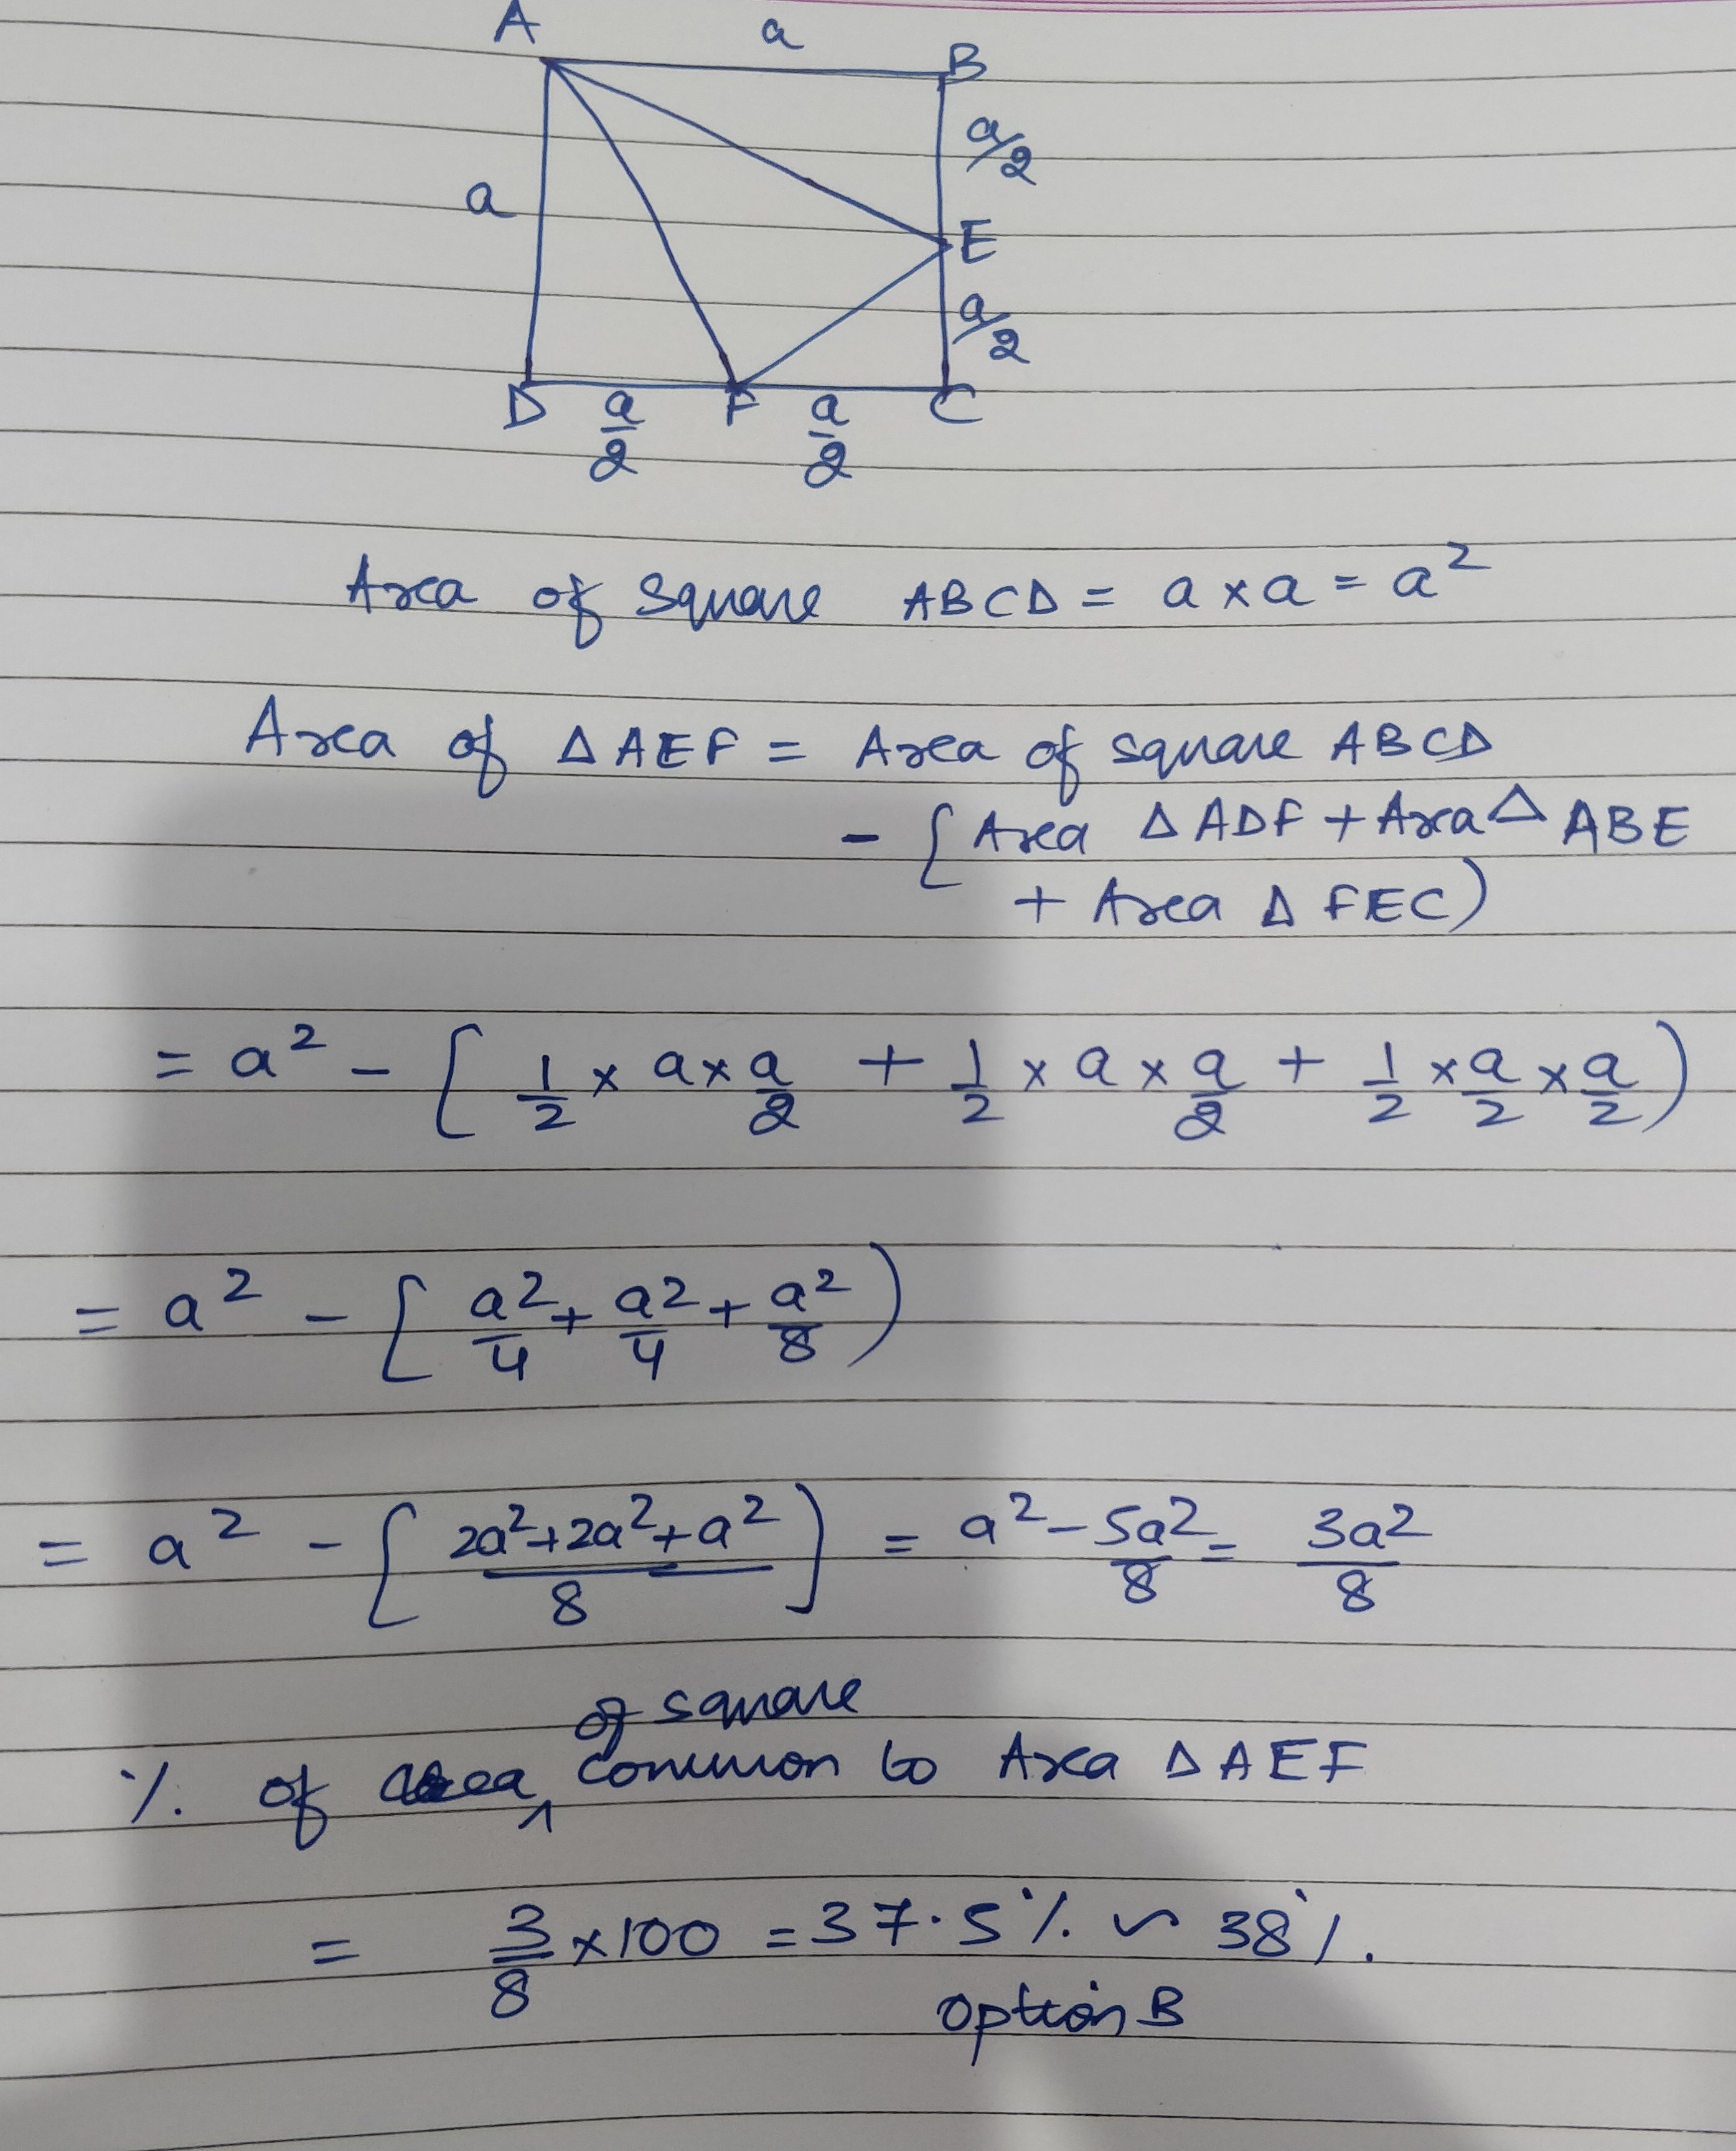 A a B
a/2
a
E
a/2
D a/2 F a/2 C
Area of square ABCD = a x a = a²
Area of △AEF = Area of square ABCD
- [Area △ADF + Area △ABE
+ Area △FEC)
= a² - [1/2 x a x a/2 + 1/2 x a x a/2 + 1/2 x a/2 x a/2)
= a² - [a²/4 + a²/4 + a²/8)
= a² - [(2a²+2a²+a²)/8] = a² - 5a²/8 = 3a²/8
of square
% of area ^ common to Area △AEF
= 3/8 x 100 = 37.5% ~ 38%.
option B